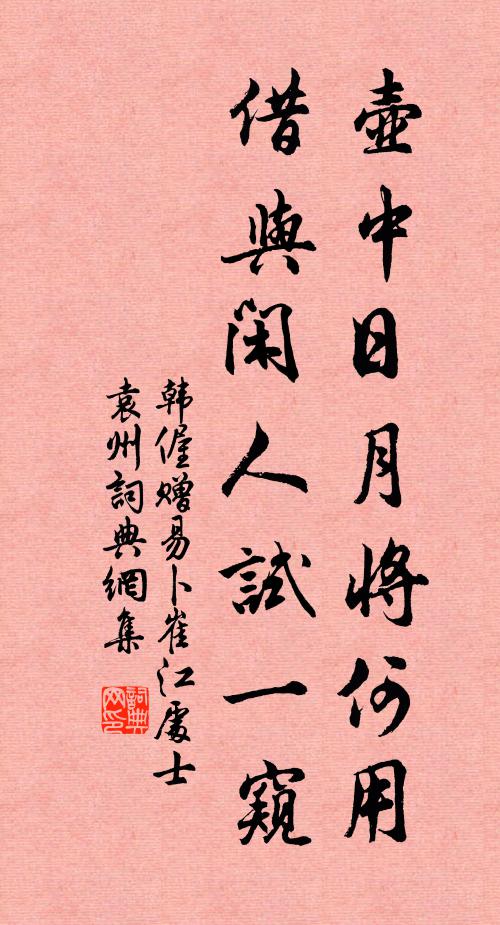 壺中日月將何用
借與閑人試一窺
韩偓赠易卜崔江處士
袁州詞典網集
詞典网印